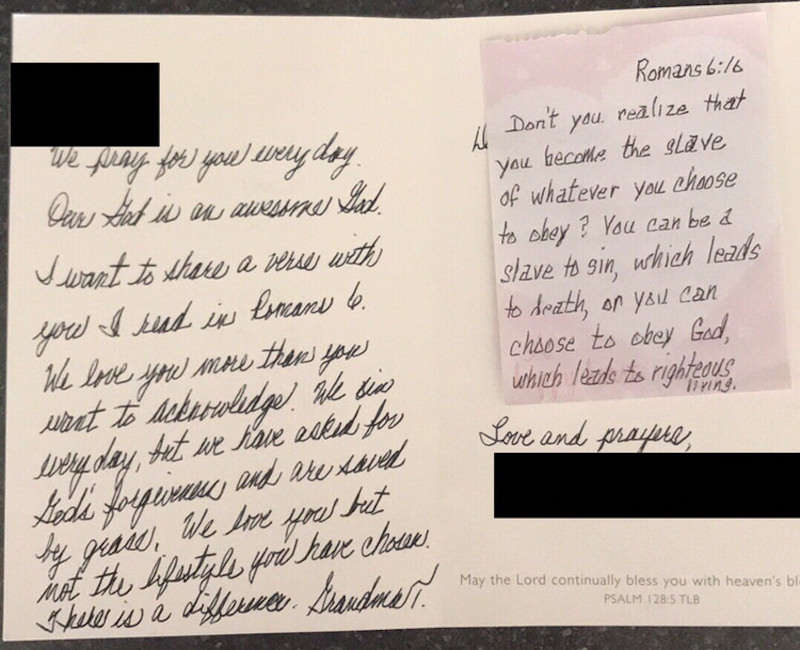 We pray for you every day.
Our God is an awesome God.
I want to share a verse with
you I read in Romans 6.
We love you more than you
want to acknowledge. We sin
every day, but we have asked for
God's forgiveness and are saved
by grass. We love you but
not the lifestyle you have chosen.
There is a difference. Grandma T.
Romans 6:16
Don't you realize that
you become the slave
of whatever you choose
to obey? You can be a
slave to sin, which leads
to death, or you can
choose to obey God,
which leads to righteous
living.
Love and prayers,
May the Lord continually bless you with heaven's bl
PSALM 128:5 TLB